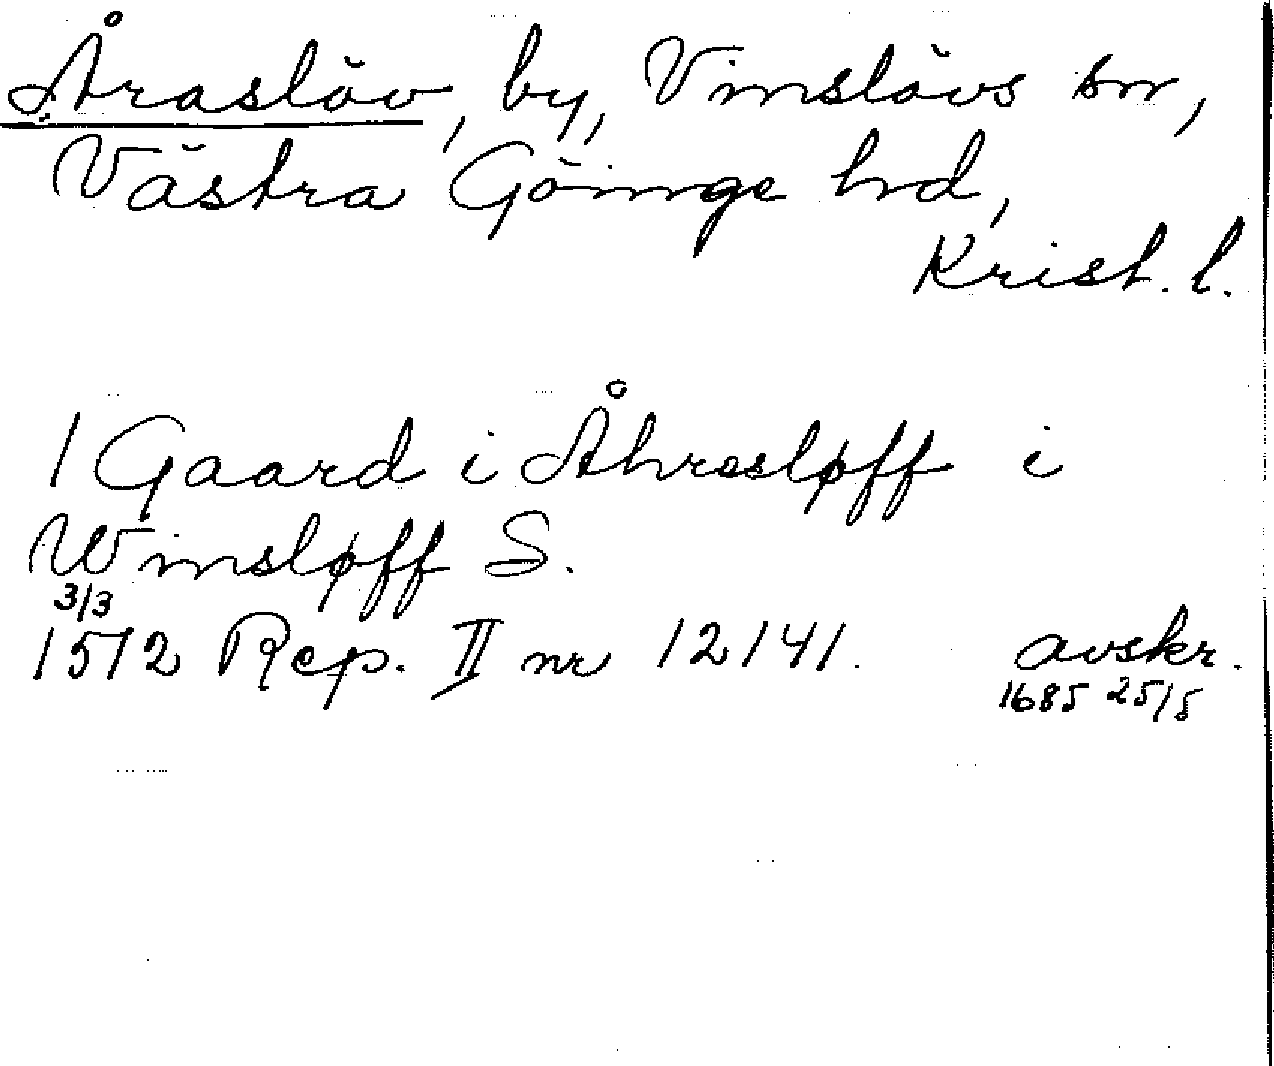 Åraslöv, by, Vinslövs sn,
Västra Göinge hd,
Krist. l.
1 Gaard i Åhresløff i
Winsløff S.
3/3
1512 Rep. II nr 12141. avskr.
1685 25/5